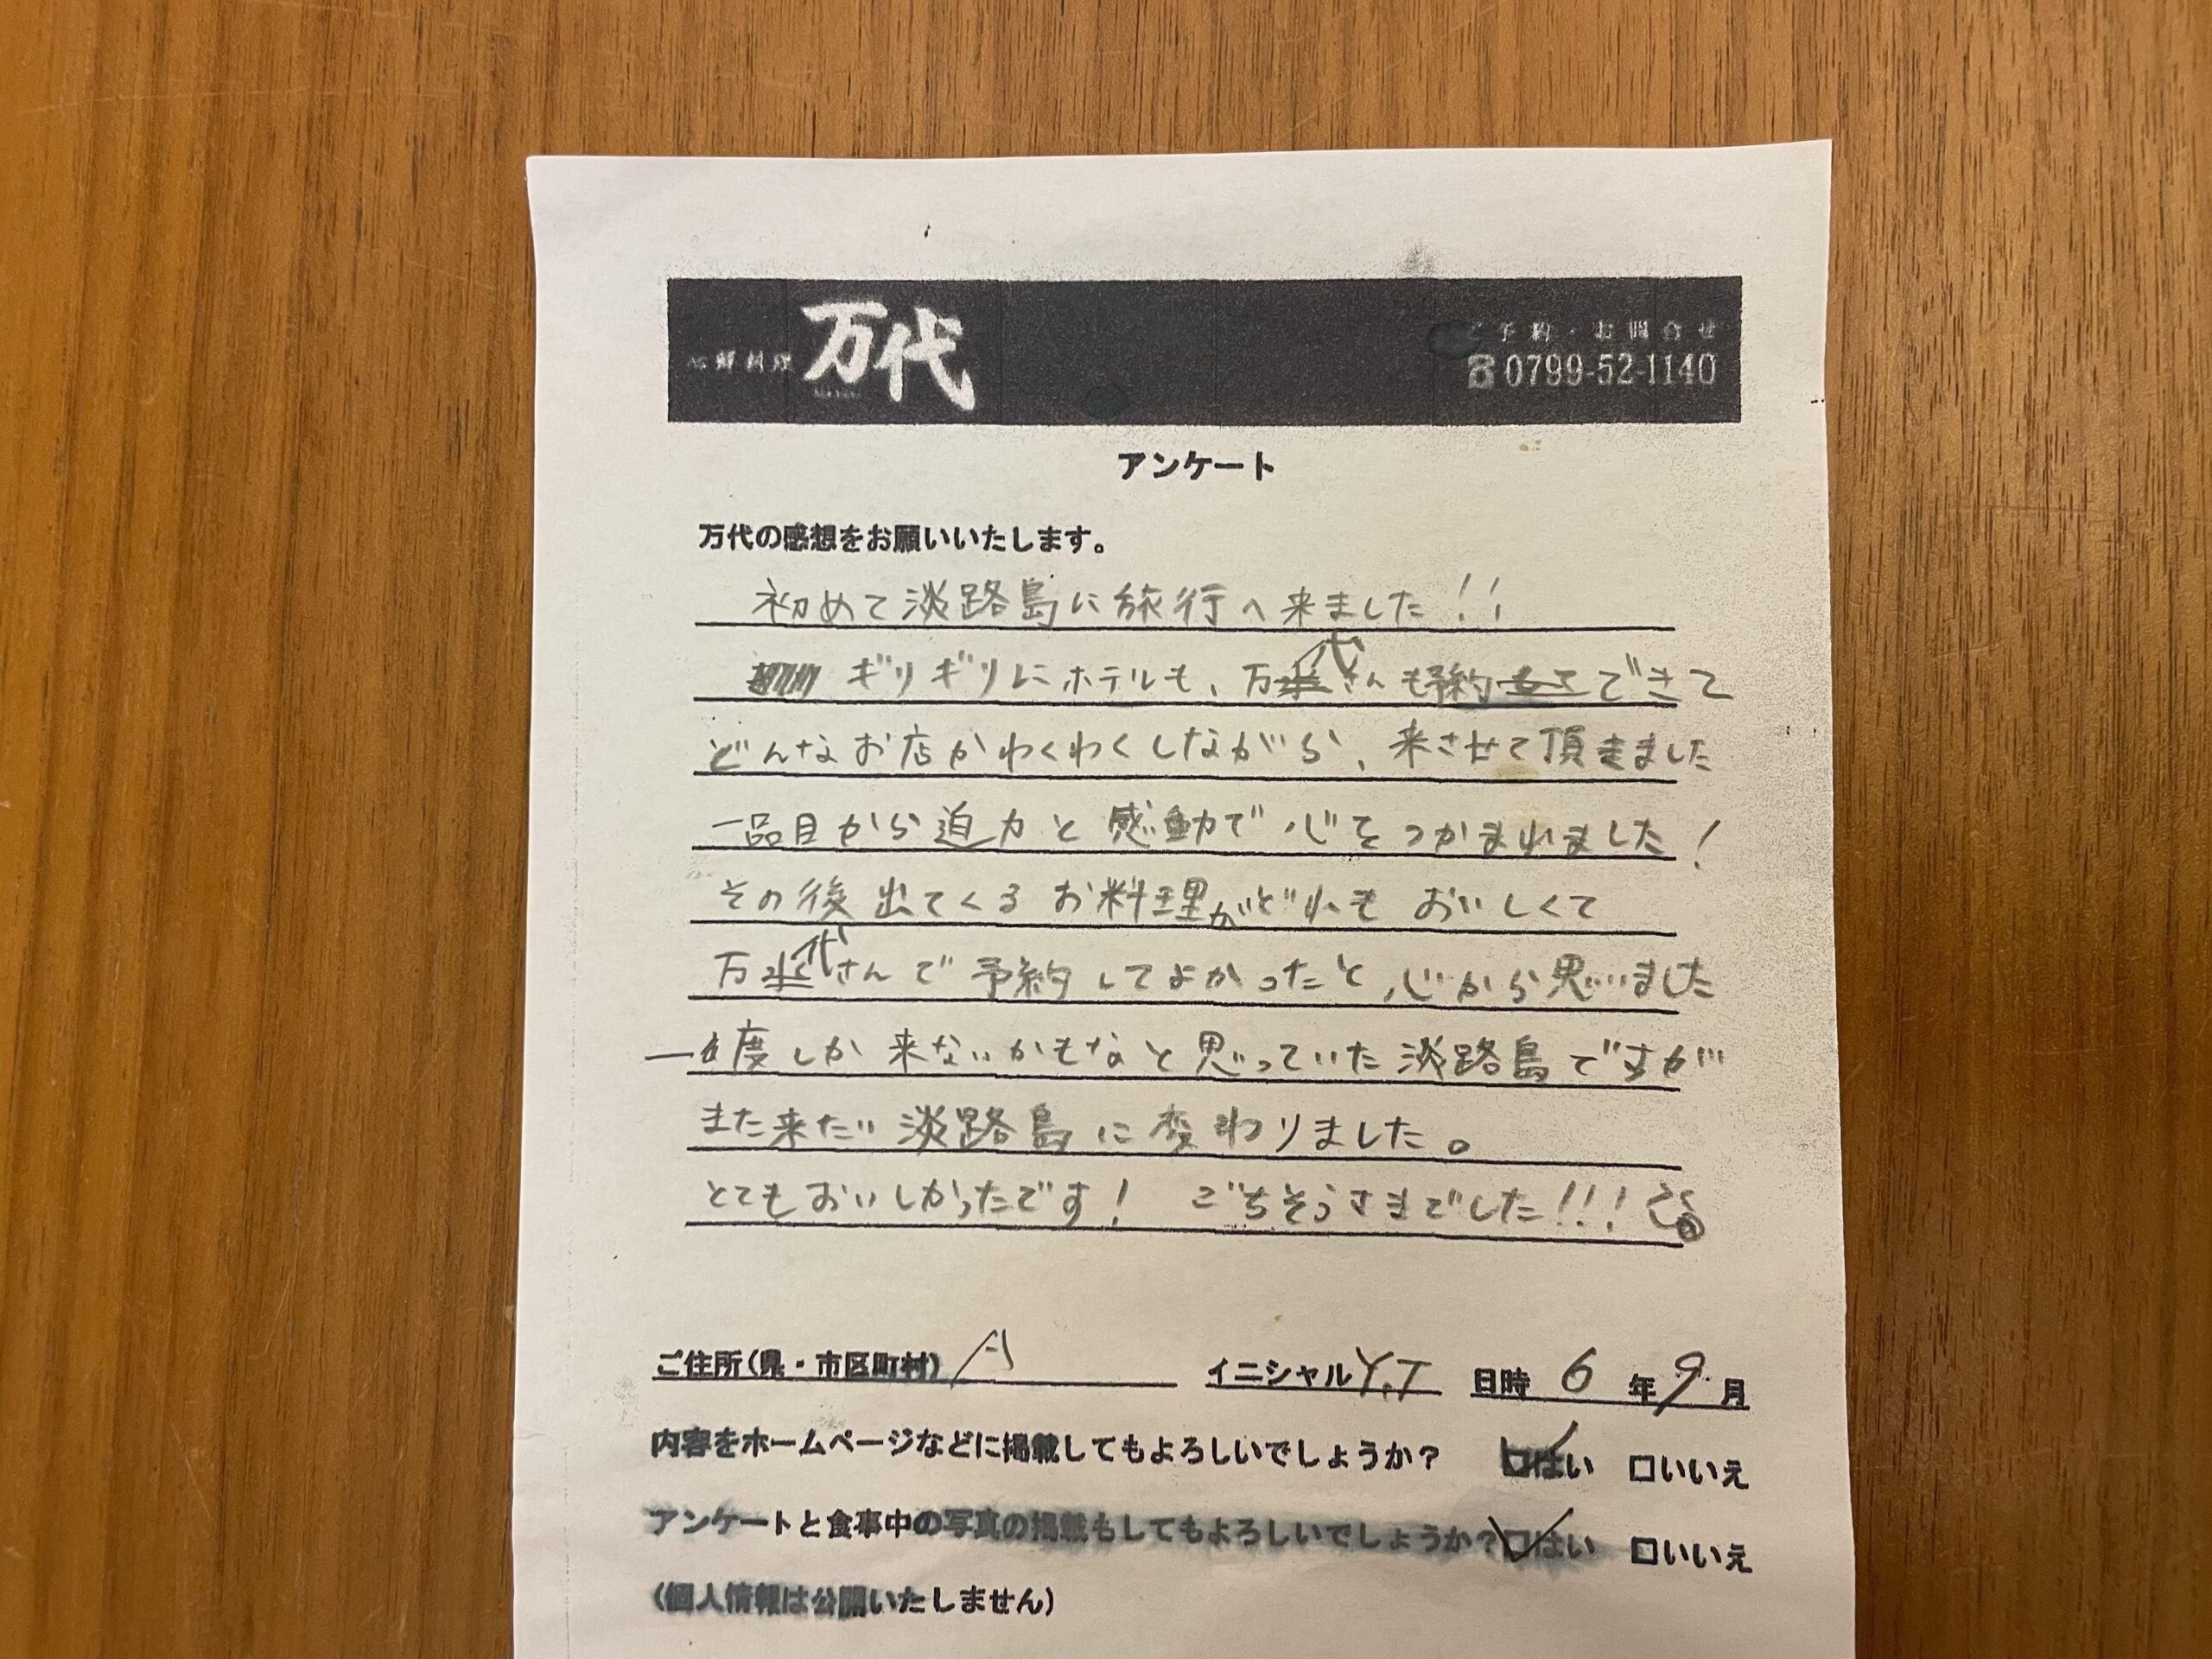 鮮料理 万代
予約・お問合せ
☎0799-52-1140
アンケート
万代の感想をお願いいたします。
初めて淡路島に旅行へ来ました!!
ギリギリにホテルも、万代さんも予約できて
どんなお店かわくわくしながら、来させて頂きました
一品目から迫力と感動で心をつかまれました!
その後出てくるお料理がどれもおいしくて
万代さんで予約してよかったと心から思いました
一度しか来ないかもなと思っていた淡路島ですが
また来たい淡路島に変わりました。
とてもおいしかったです! ごちそうさまでした!!!
ご住所(県・市区町村) イニシャル Y.T 日時 6年9月
内容をホームページなどに掲載してもよろしいでしょうか? ☑はい □いいえ
アンケートと食事中の写真の掲載もしてもよろしいでしょうか? ☑はい □いいえ
(個人情報は公開いたしません)